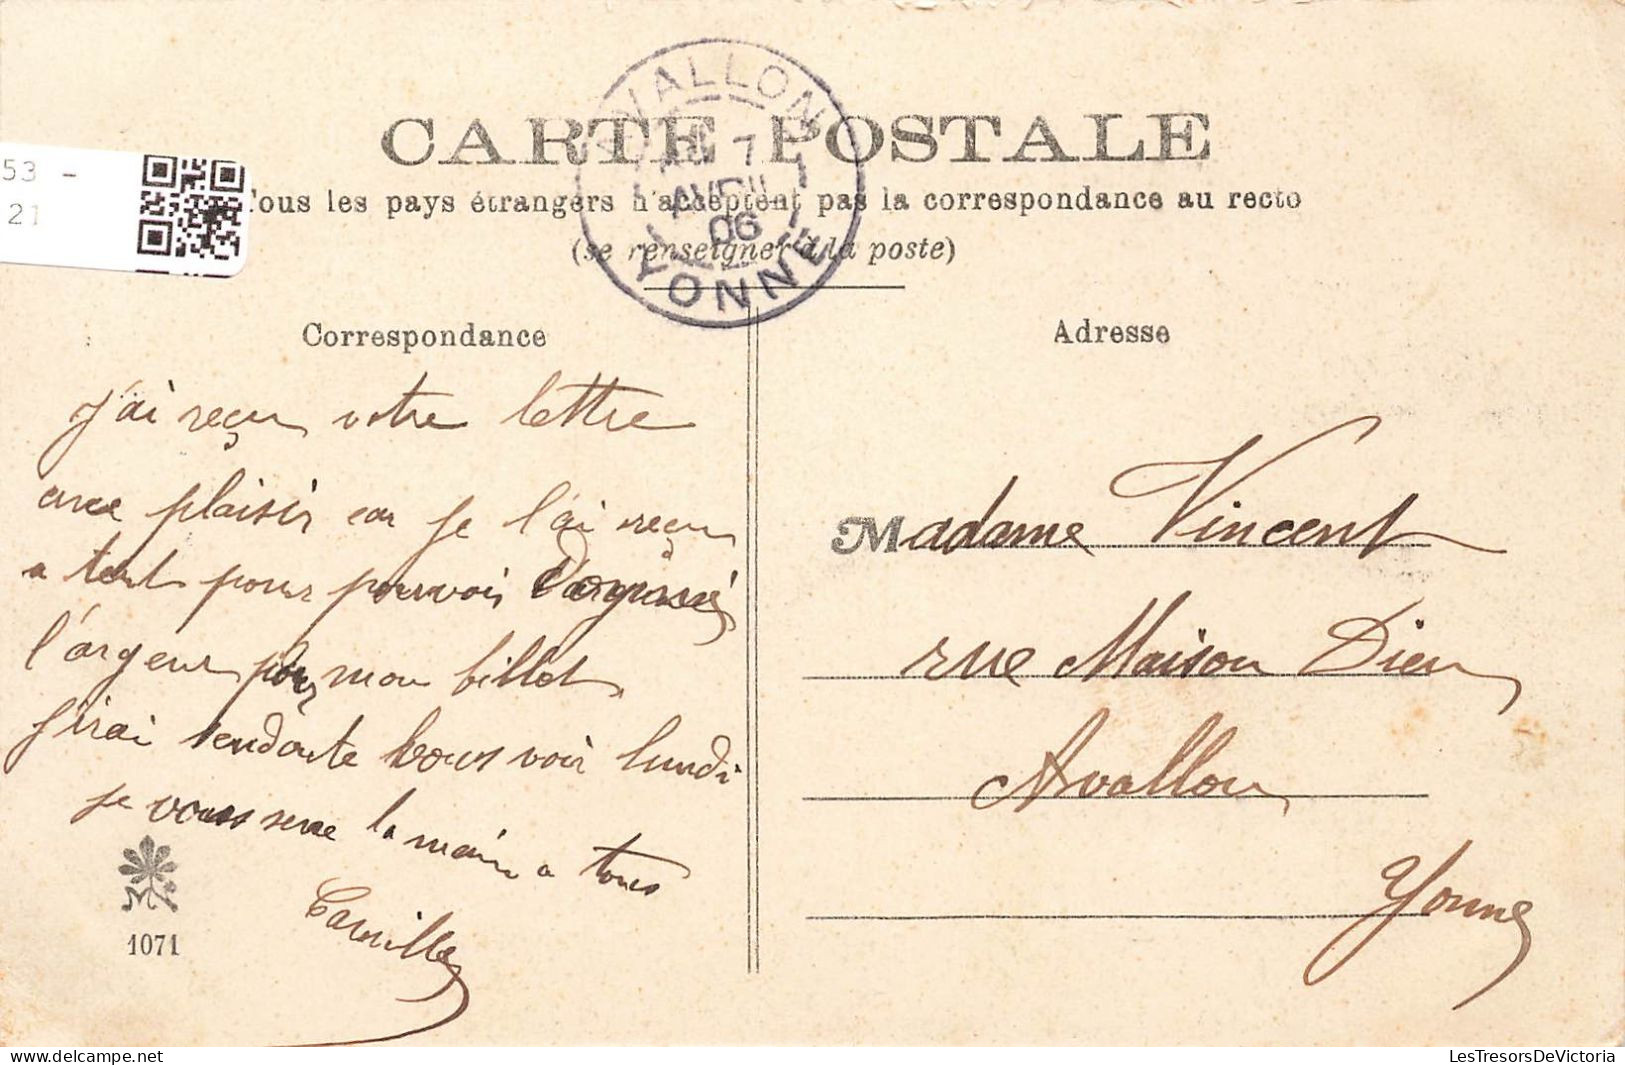 53 -
21
AVALLON
7
AVRIL
06
YONNE
CARTE POSTALE
Tous les pays étrangers n'acceptent pas la correspondance au recto
(se renseigner à la poste)
Correspondance
Adresse
j'ai reçu votre lettre
avec plaisir car je l'ai reçu
a tent pour pouvoir
l'argent pour mon billet
j'irai sendoute vous voir lundi
je vous serre la main a tous
Camille
1071
Madame Vincent
rue Maison Dieu
Avallon
Yonne
LesTresorsDeVictoria